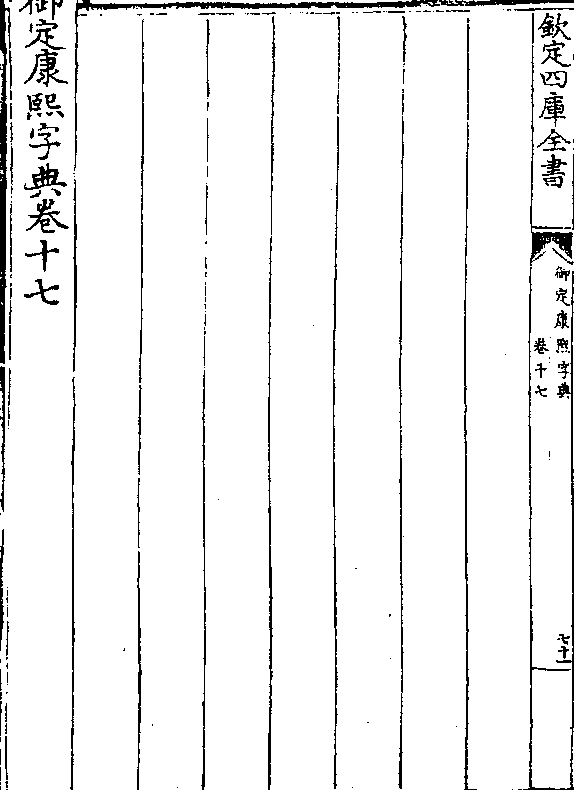 欽定四庫全書
御定康熙字典
卷十七
七十一
御定康熙字典卷十七